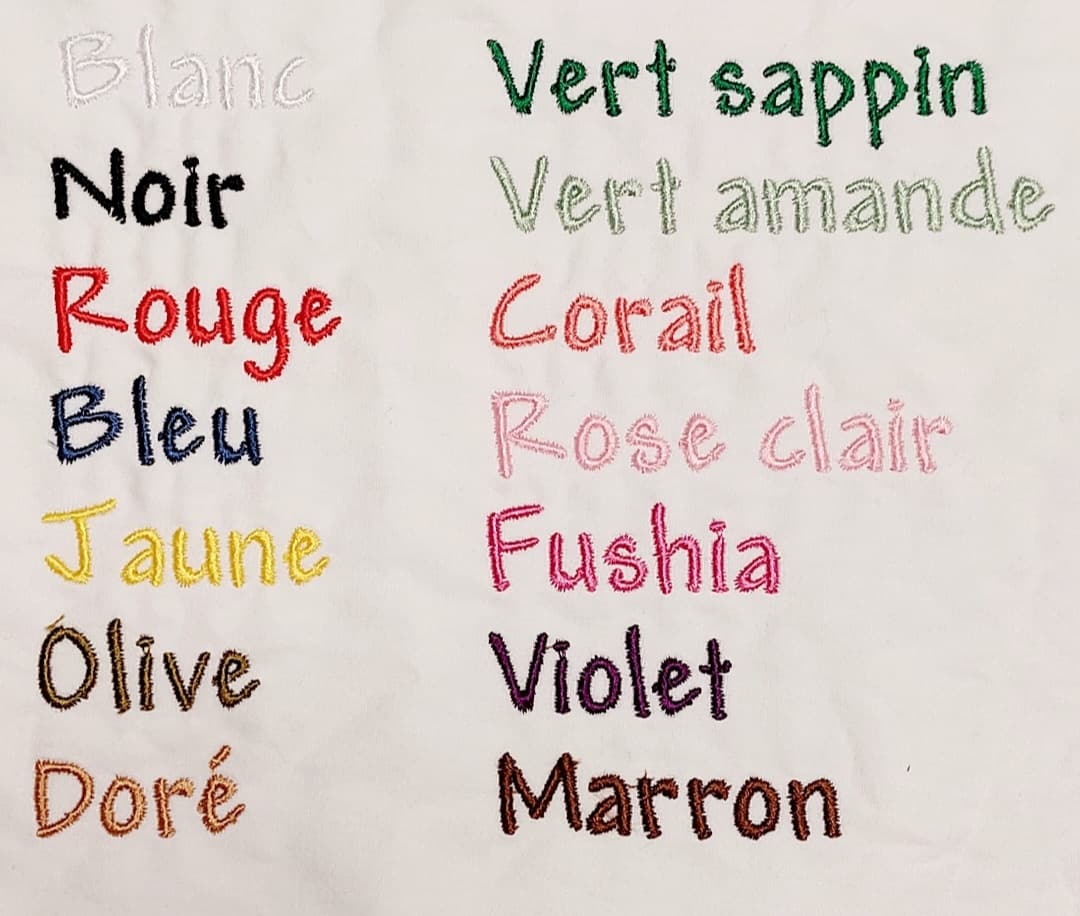 Blanc
Noir
Rouge
Bleu
Jaune
Olive
Doré
Vert sappin
Vert amande
Corail
Rose clair
Fushia
Violet
Marron